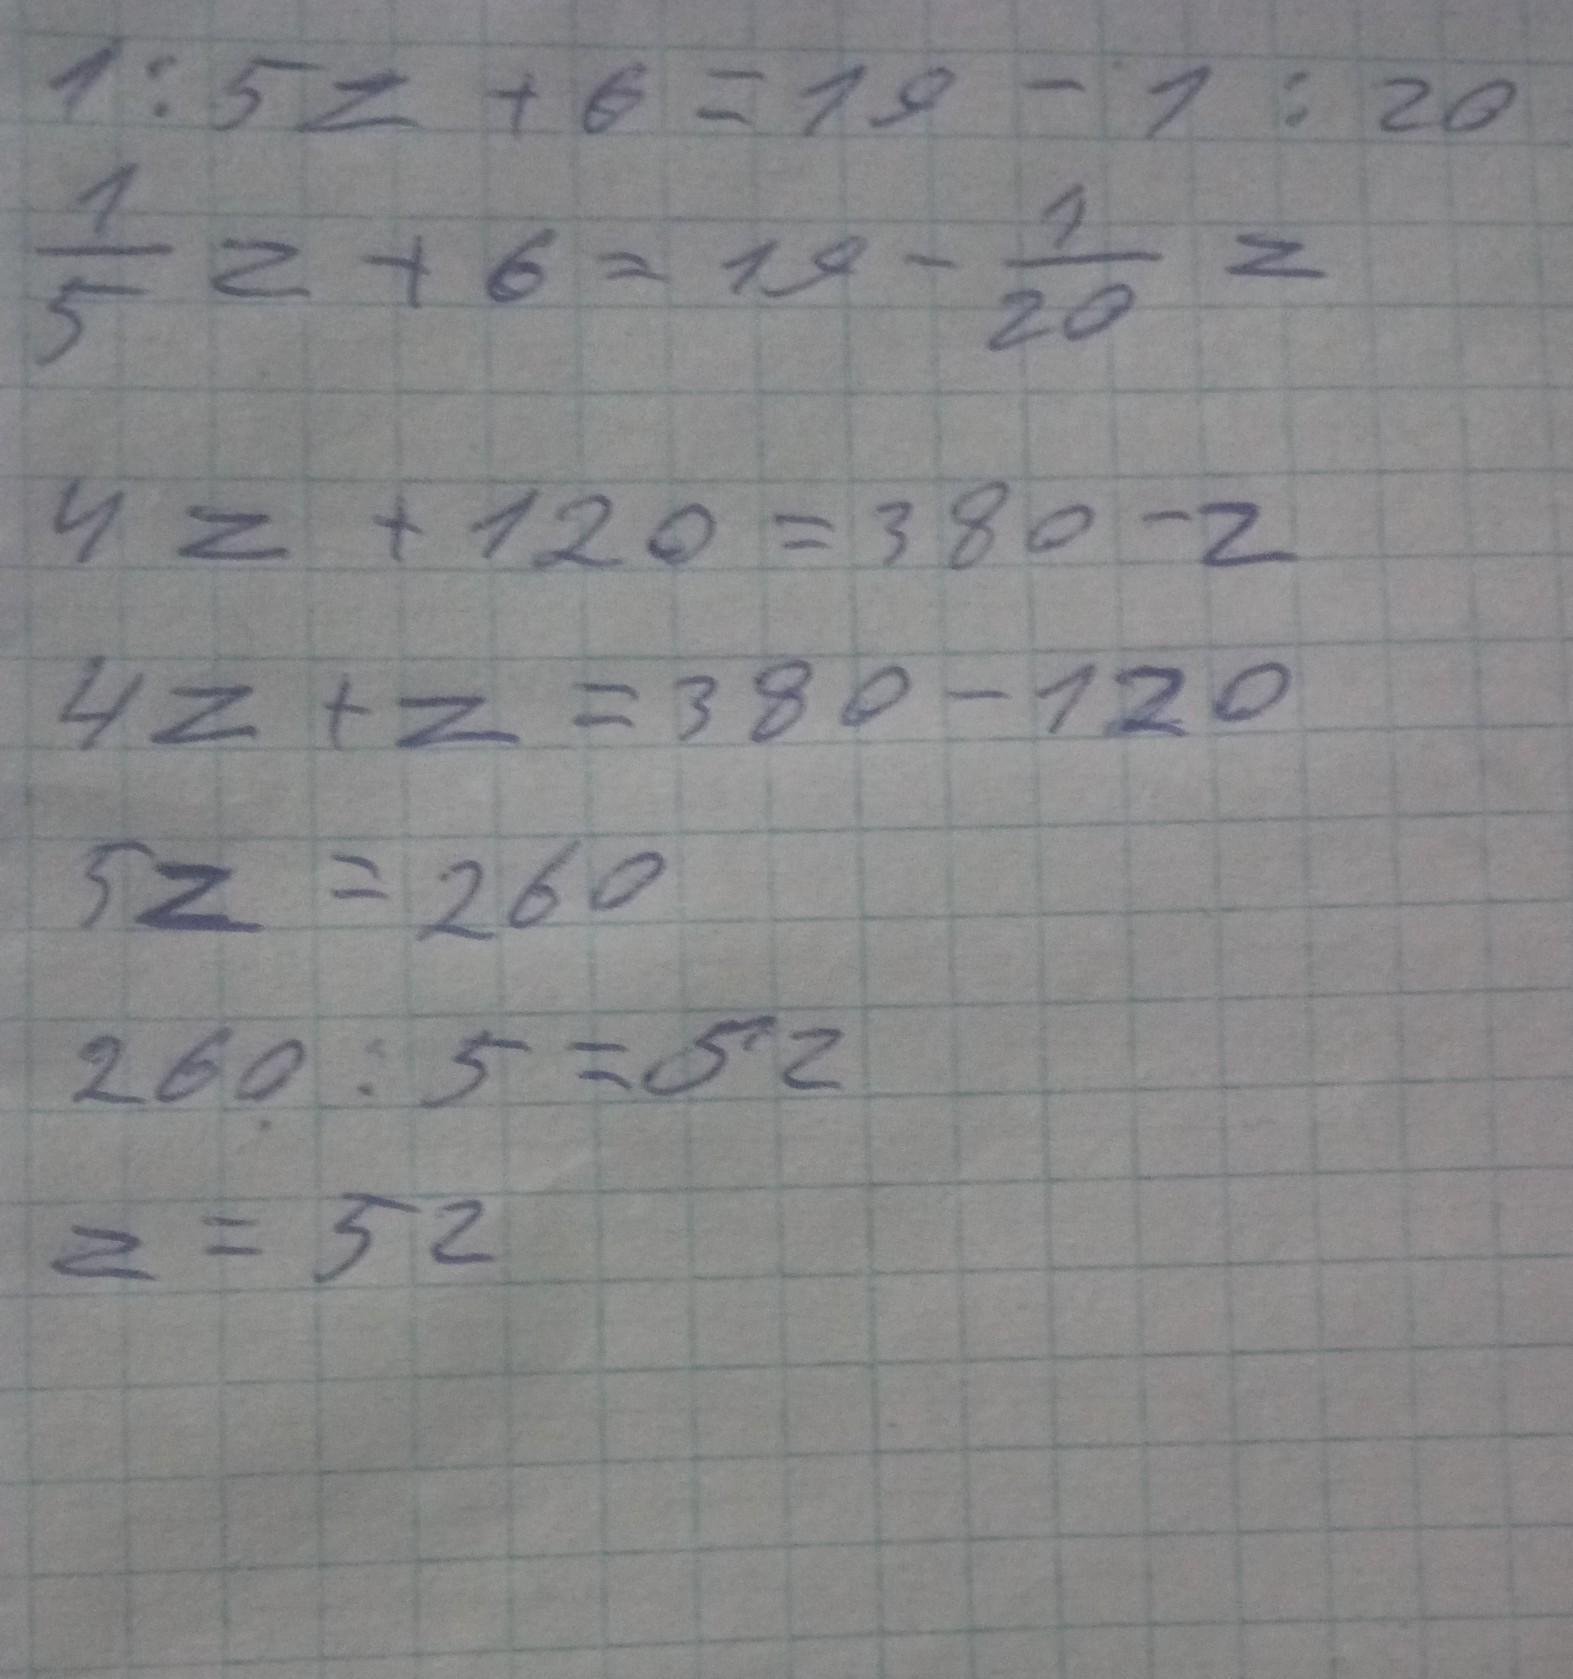 1 : 5z + 6 = 19 - 1 : 20
1/5 z + 6 = 19 - 1/20 z
4z + 120 = 380 - z
4z + z = 380 - 120
5z = 260
260 : 5 = 52
z = 52